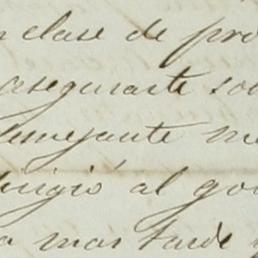 clase de pro
asegurarte so
semejante me
dirigió al go
a mas tarde